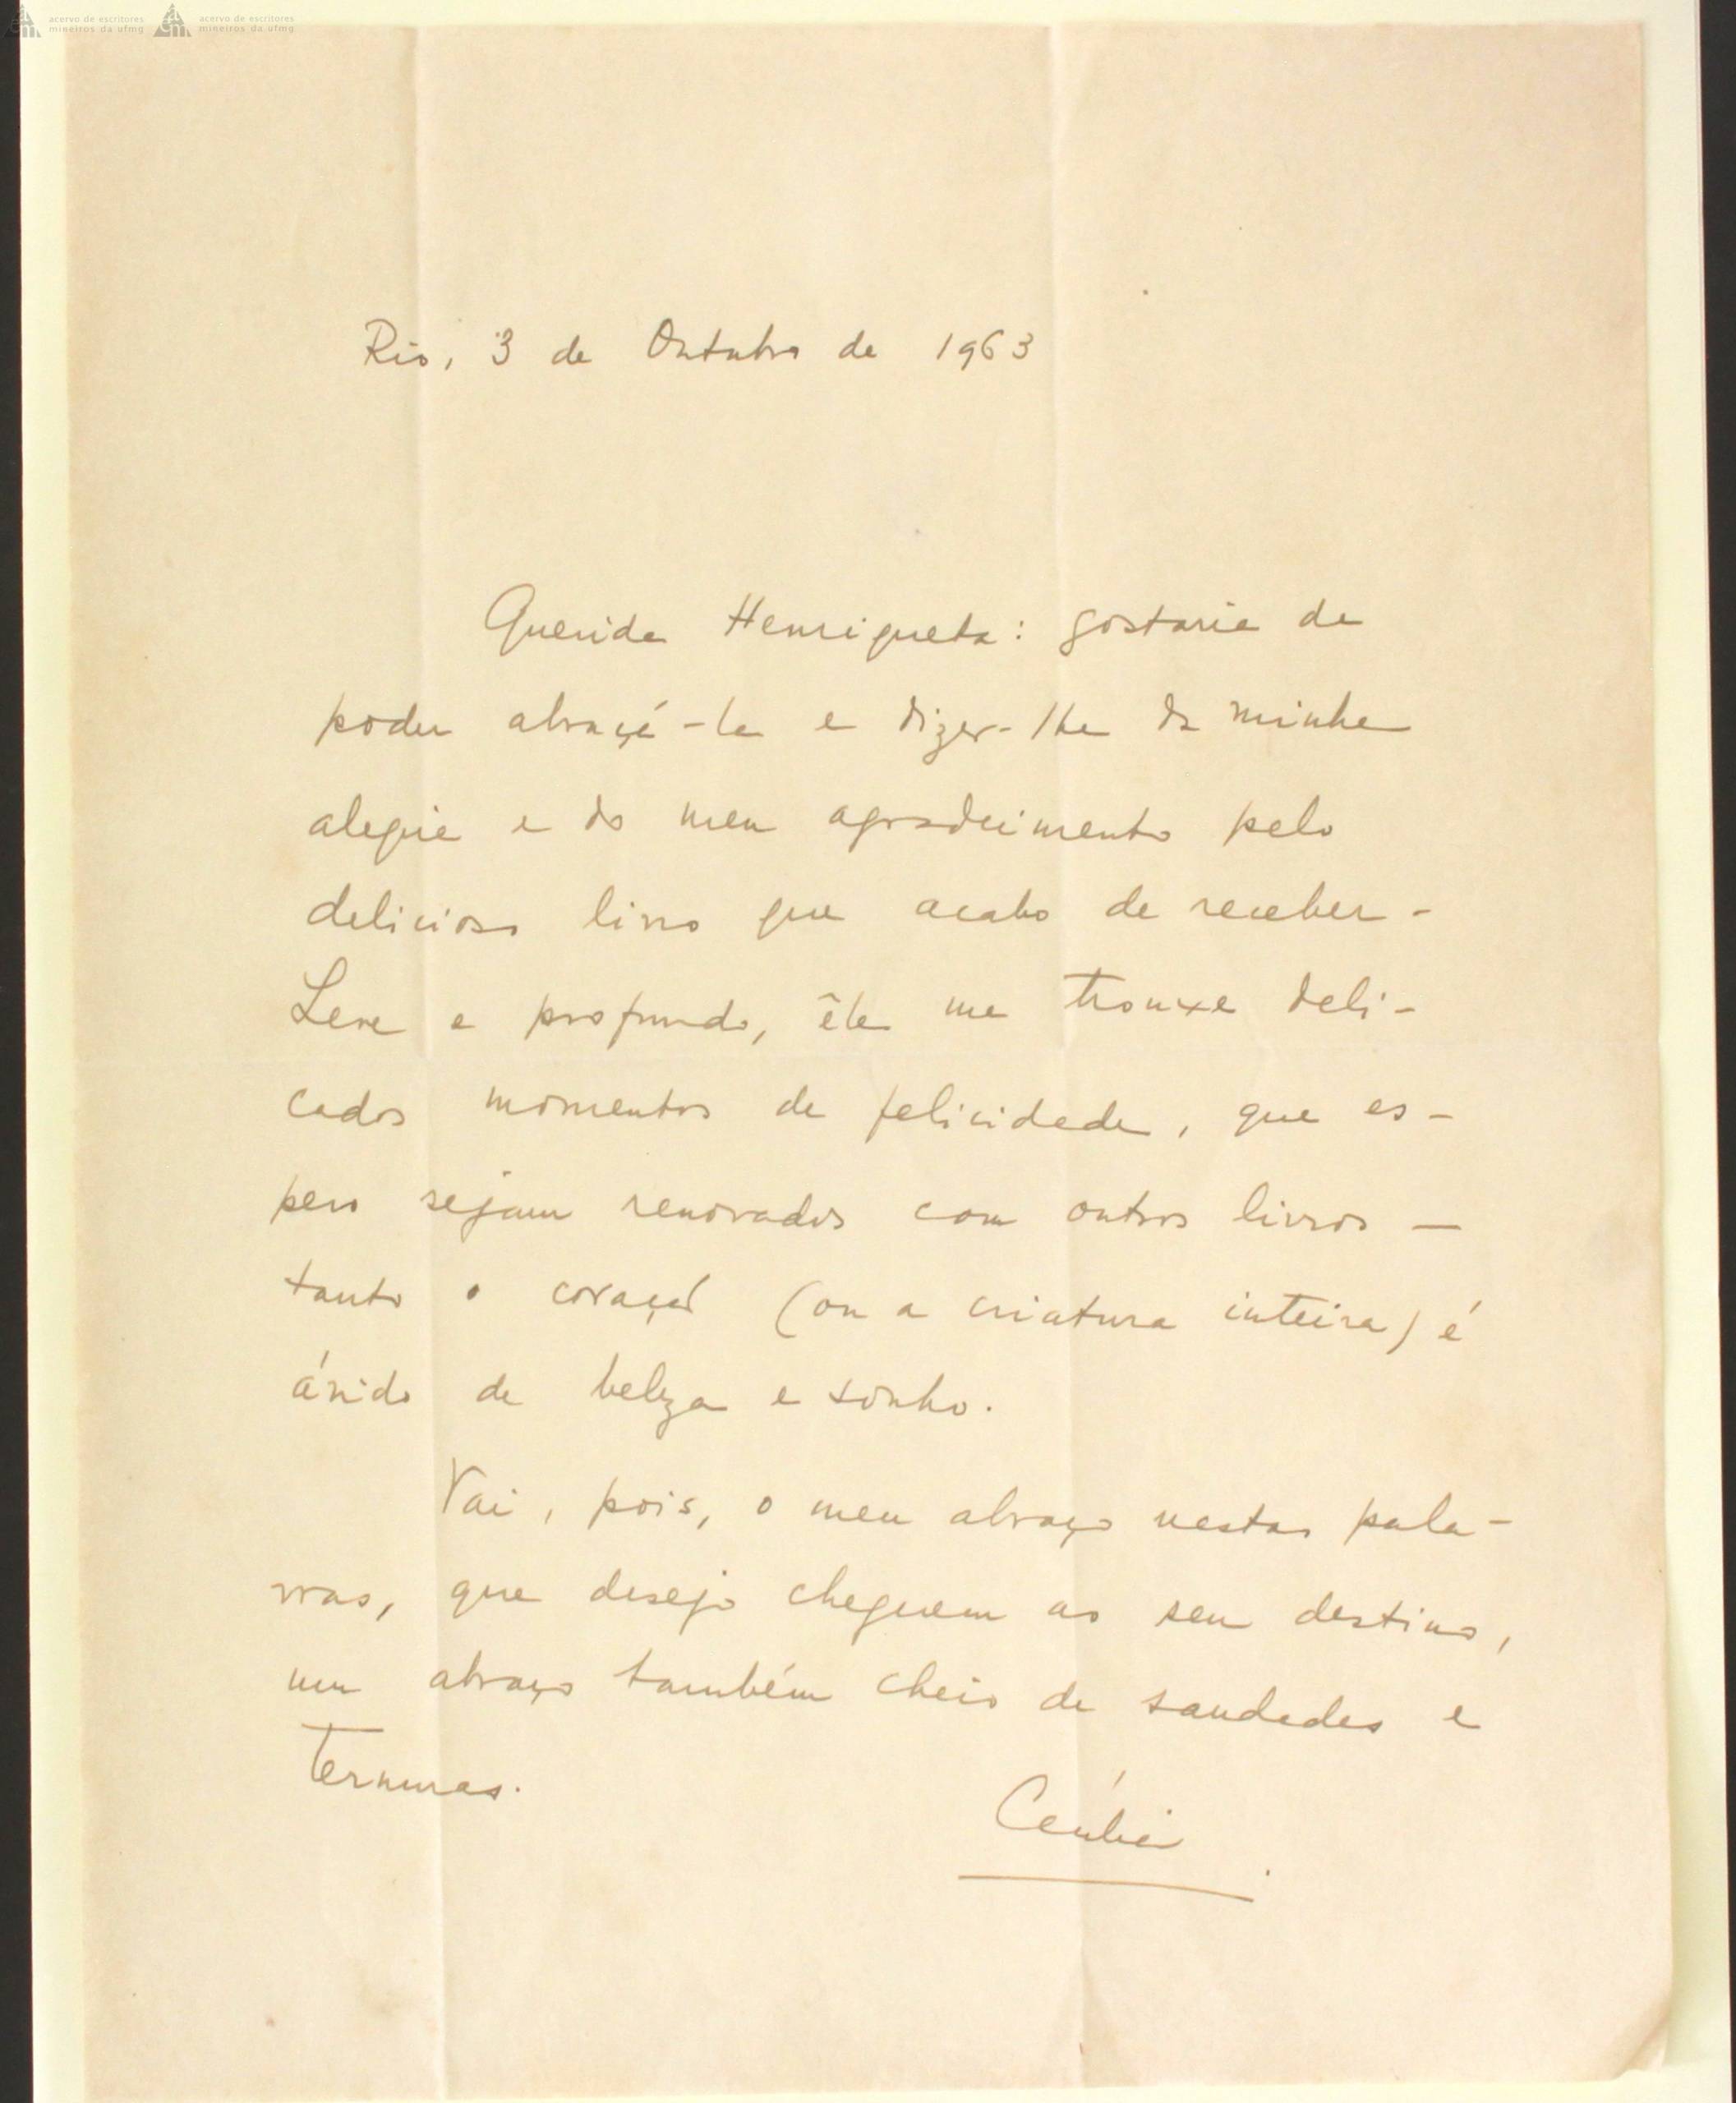 acervo de escritores
mineiros da ufmg
acervo de escritores
mineiros da ufmg
Rio, 3 de Outubro de 1963
Querida Henriqueta: gostaria de
poder abraçá-la e dizer-lhe da minha
alegria e do meu agradecimento pelo
delicioso livro que acabo de receber -
Leve e profundo, êle me trouxe deli-
cados momentos de felicidade, que es-
pero sejam renovados com outros livros —
tanto o coração (ou a criatura inteira) é
ávido de beleza e sonho.
Vai, pois, o meu abraço nestas pala-
vras, que desejo cheguem ao seu destino,
um abraço também cheio de saudades e
ternuras.